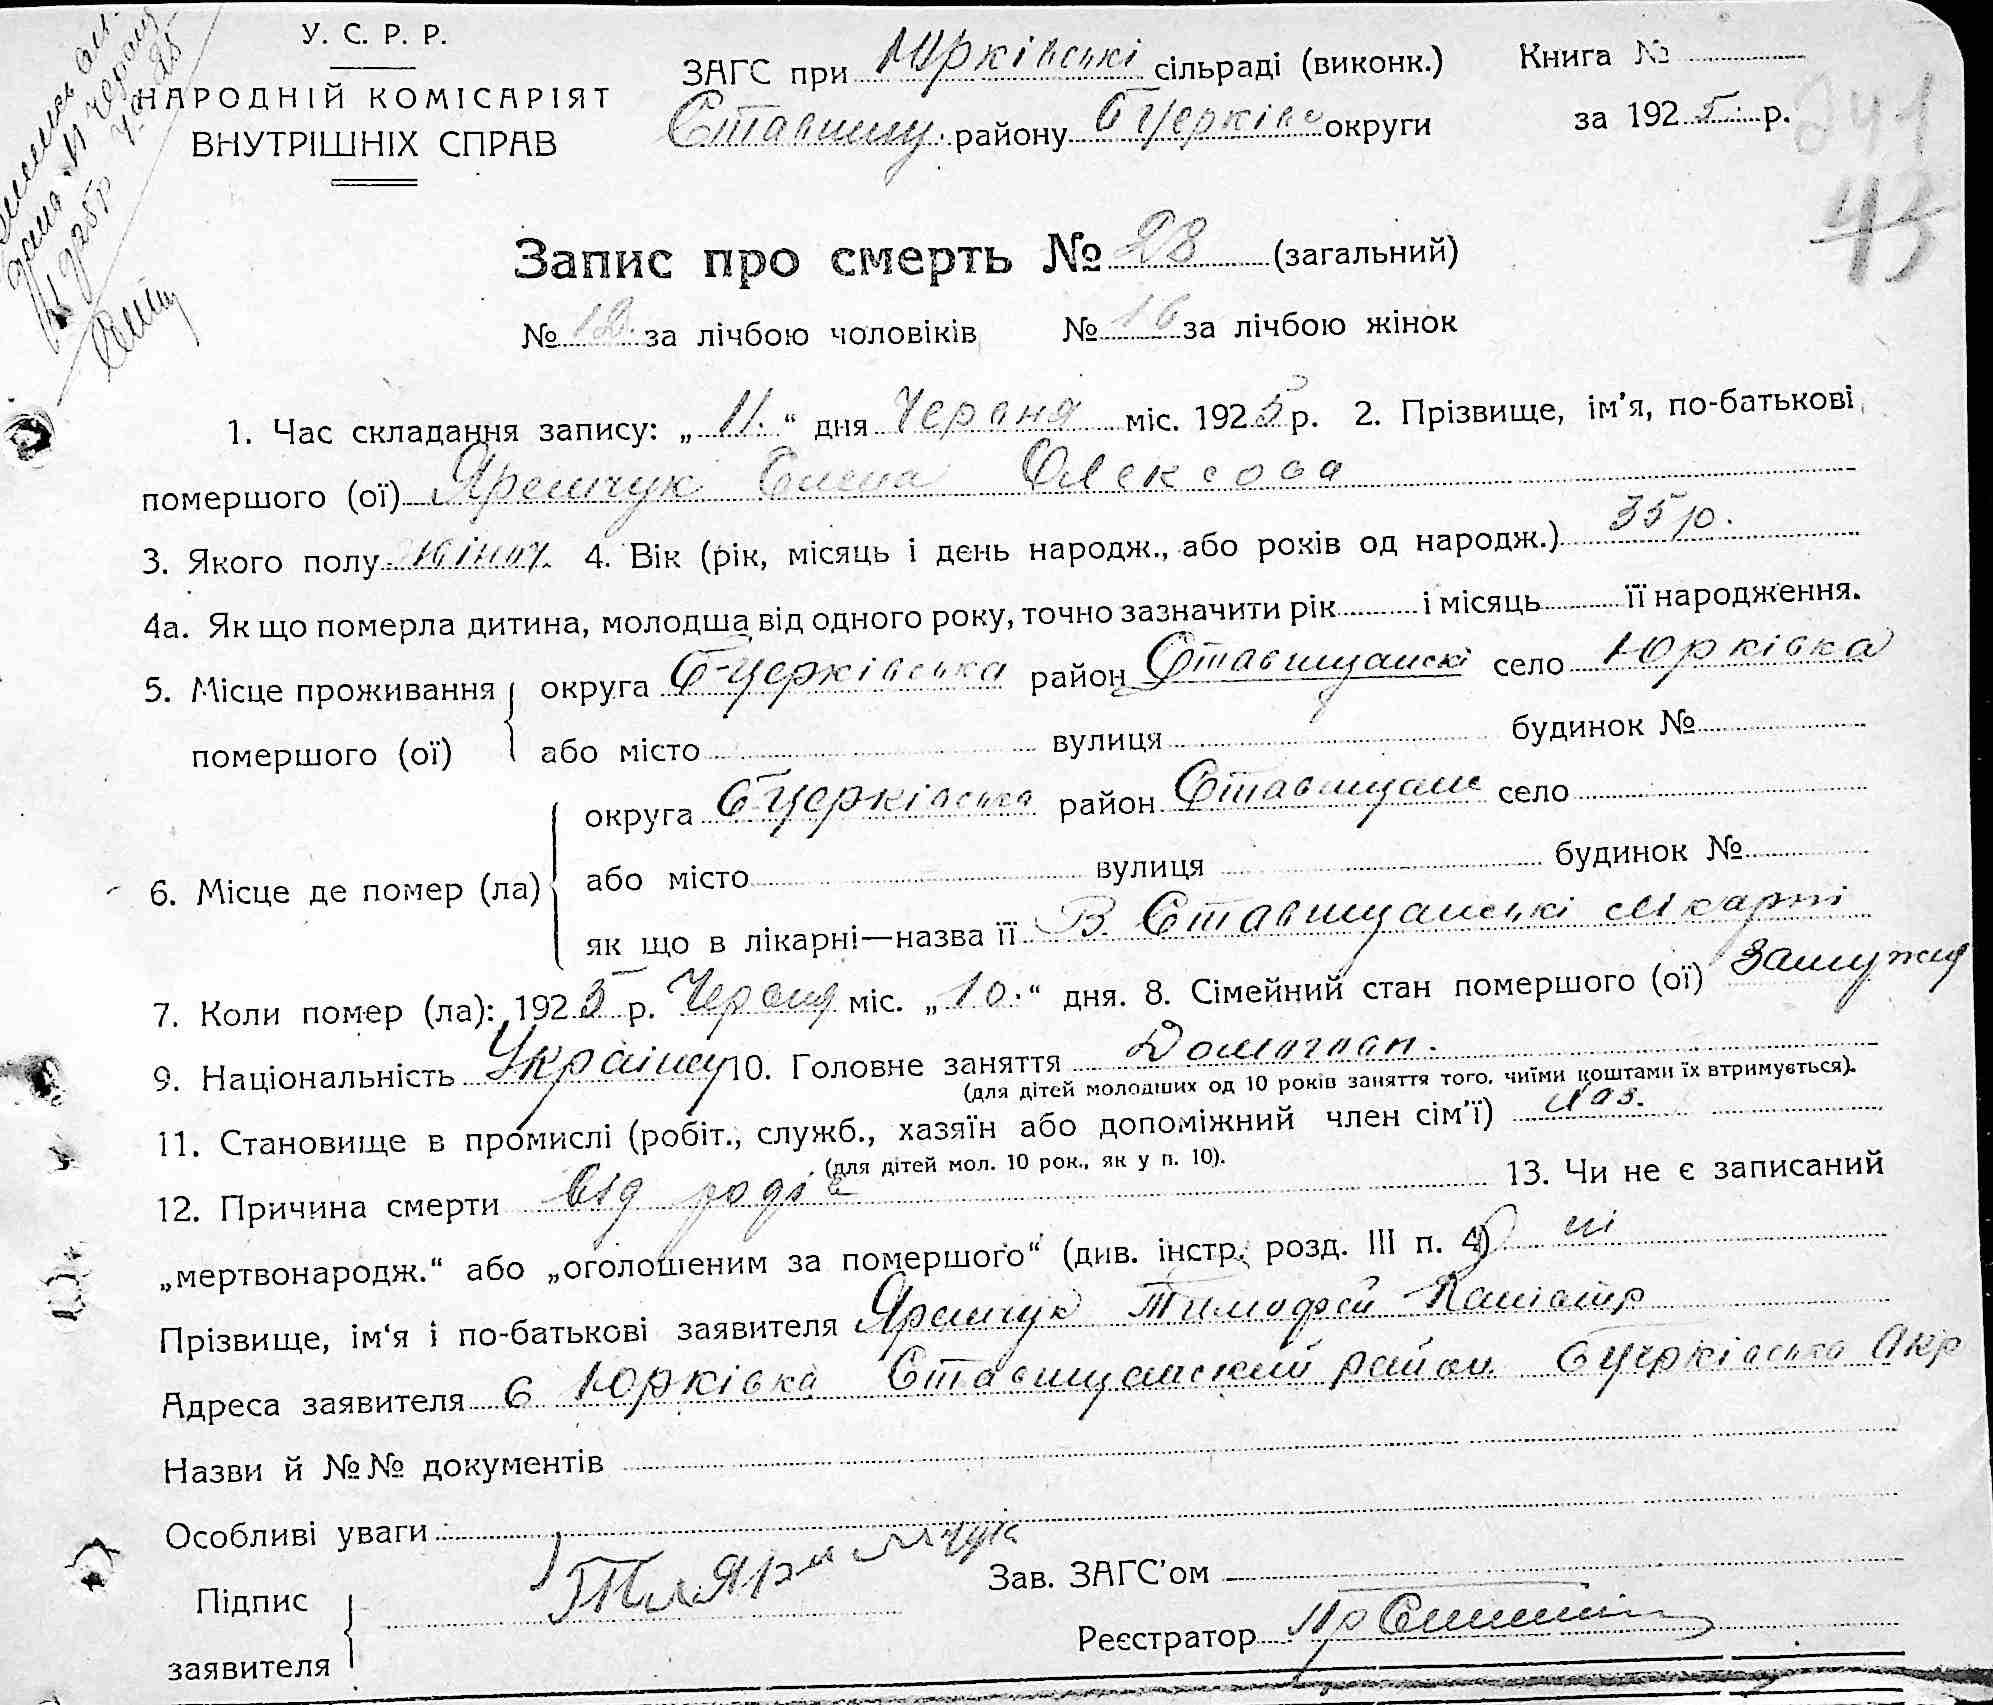 У. С. Р. Р.
НАРОДНІЙ КОМІСАРІЯТ
ВНУТРІШНІХ СПРАВ
ЗАГС при Юрківські сільраді (виконк.) Книга №
Ставищ. району Б Церківс округи за 1925 р.
241
43
Запис про смерть № 28 (загальний)
№ 12. за лічбою чоловіків № 16 за лічбою жінок
1. Час складання запису: „ 11. “ дня Червня міс. 1925 р. 2. Прізвище, ім’я, по-батькові
помершого (ої) Яремчук Елена Олексова
3. Якого полу жіноч. 4. Вік (рік, місяць і день народж., або років од народж.) 35 р.
4а. Як що померла дитина, молодша від одного року, точно зазначити рік і місяць її народження.
5. Місце проживання помершого (ої) округа Б-Церківська район Ставищанскі село Юрківка
або місто вулиця будинок №
6. Місце де помер (ла) округа Б-Церківська район Ставищан село
або місто вулиця будинок №
як що в лікарні—назва її В. Ставищанські лікарні
7. Коли помер (ла): 1925 р. Червня міс. „ 10. “ дня. 8. Сімейний стан помершого (ої) Замужня
9. Національність 10. Головне заняття
(для дітей молодших од 10 років заняття того, чиїми коштами їх втримується).
11. Становище в промислі (робіт., служб., хазяїн або допоміжний член сім’ї) хаз.
(для дітей мол. 10 рок., як у п. 10).
12. Причина смерти від родів 13. Чи не є записаний
„мертвонародж.“ або „оголошеним за помершого“ (див. інстр. розд. III п. 4) ні
Прізвище, ім’я і по-батькові заявителя Яремчук Тимофей
Адреса заявителя с Юрківка Ставищанский район Бцерківська Окр
Назви й №№ документів
Особливі уваги
Підпис заявителя
Зав. ЗАГС’ом
Реєстратор